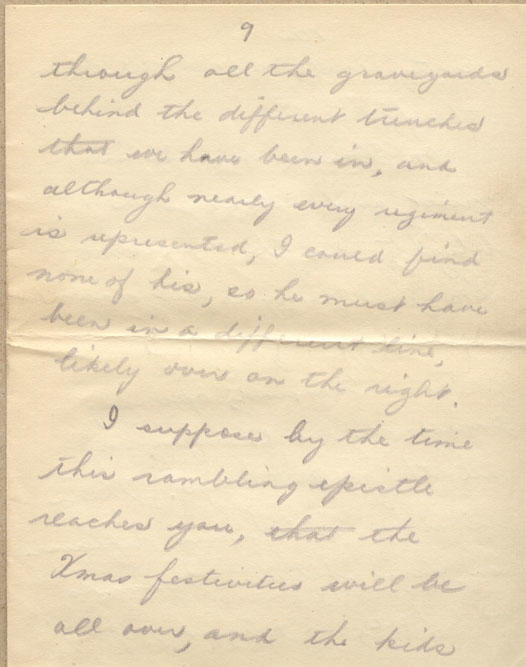 9
through all the graveyards
behind the different trenches
that we have been in, and
although nearly every regiment
is represented, I could find
none of his, so he must have
been in a different line,
likely over on the right.
I suppose by the time
this rambling epistle
reaches you, that the
Xmas festivities will be
all over, and the kids